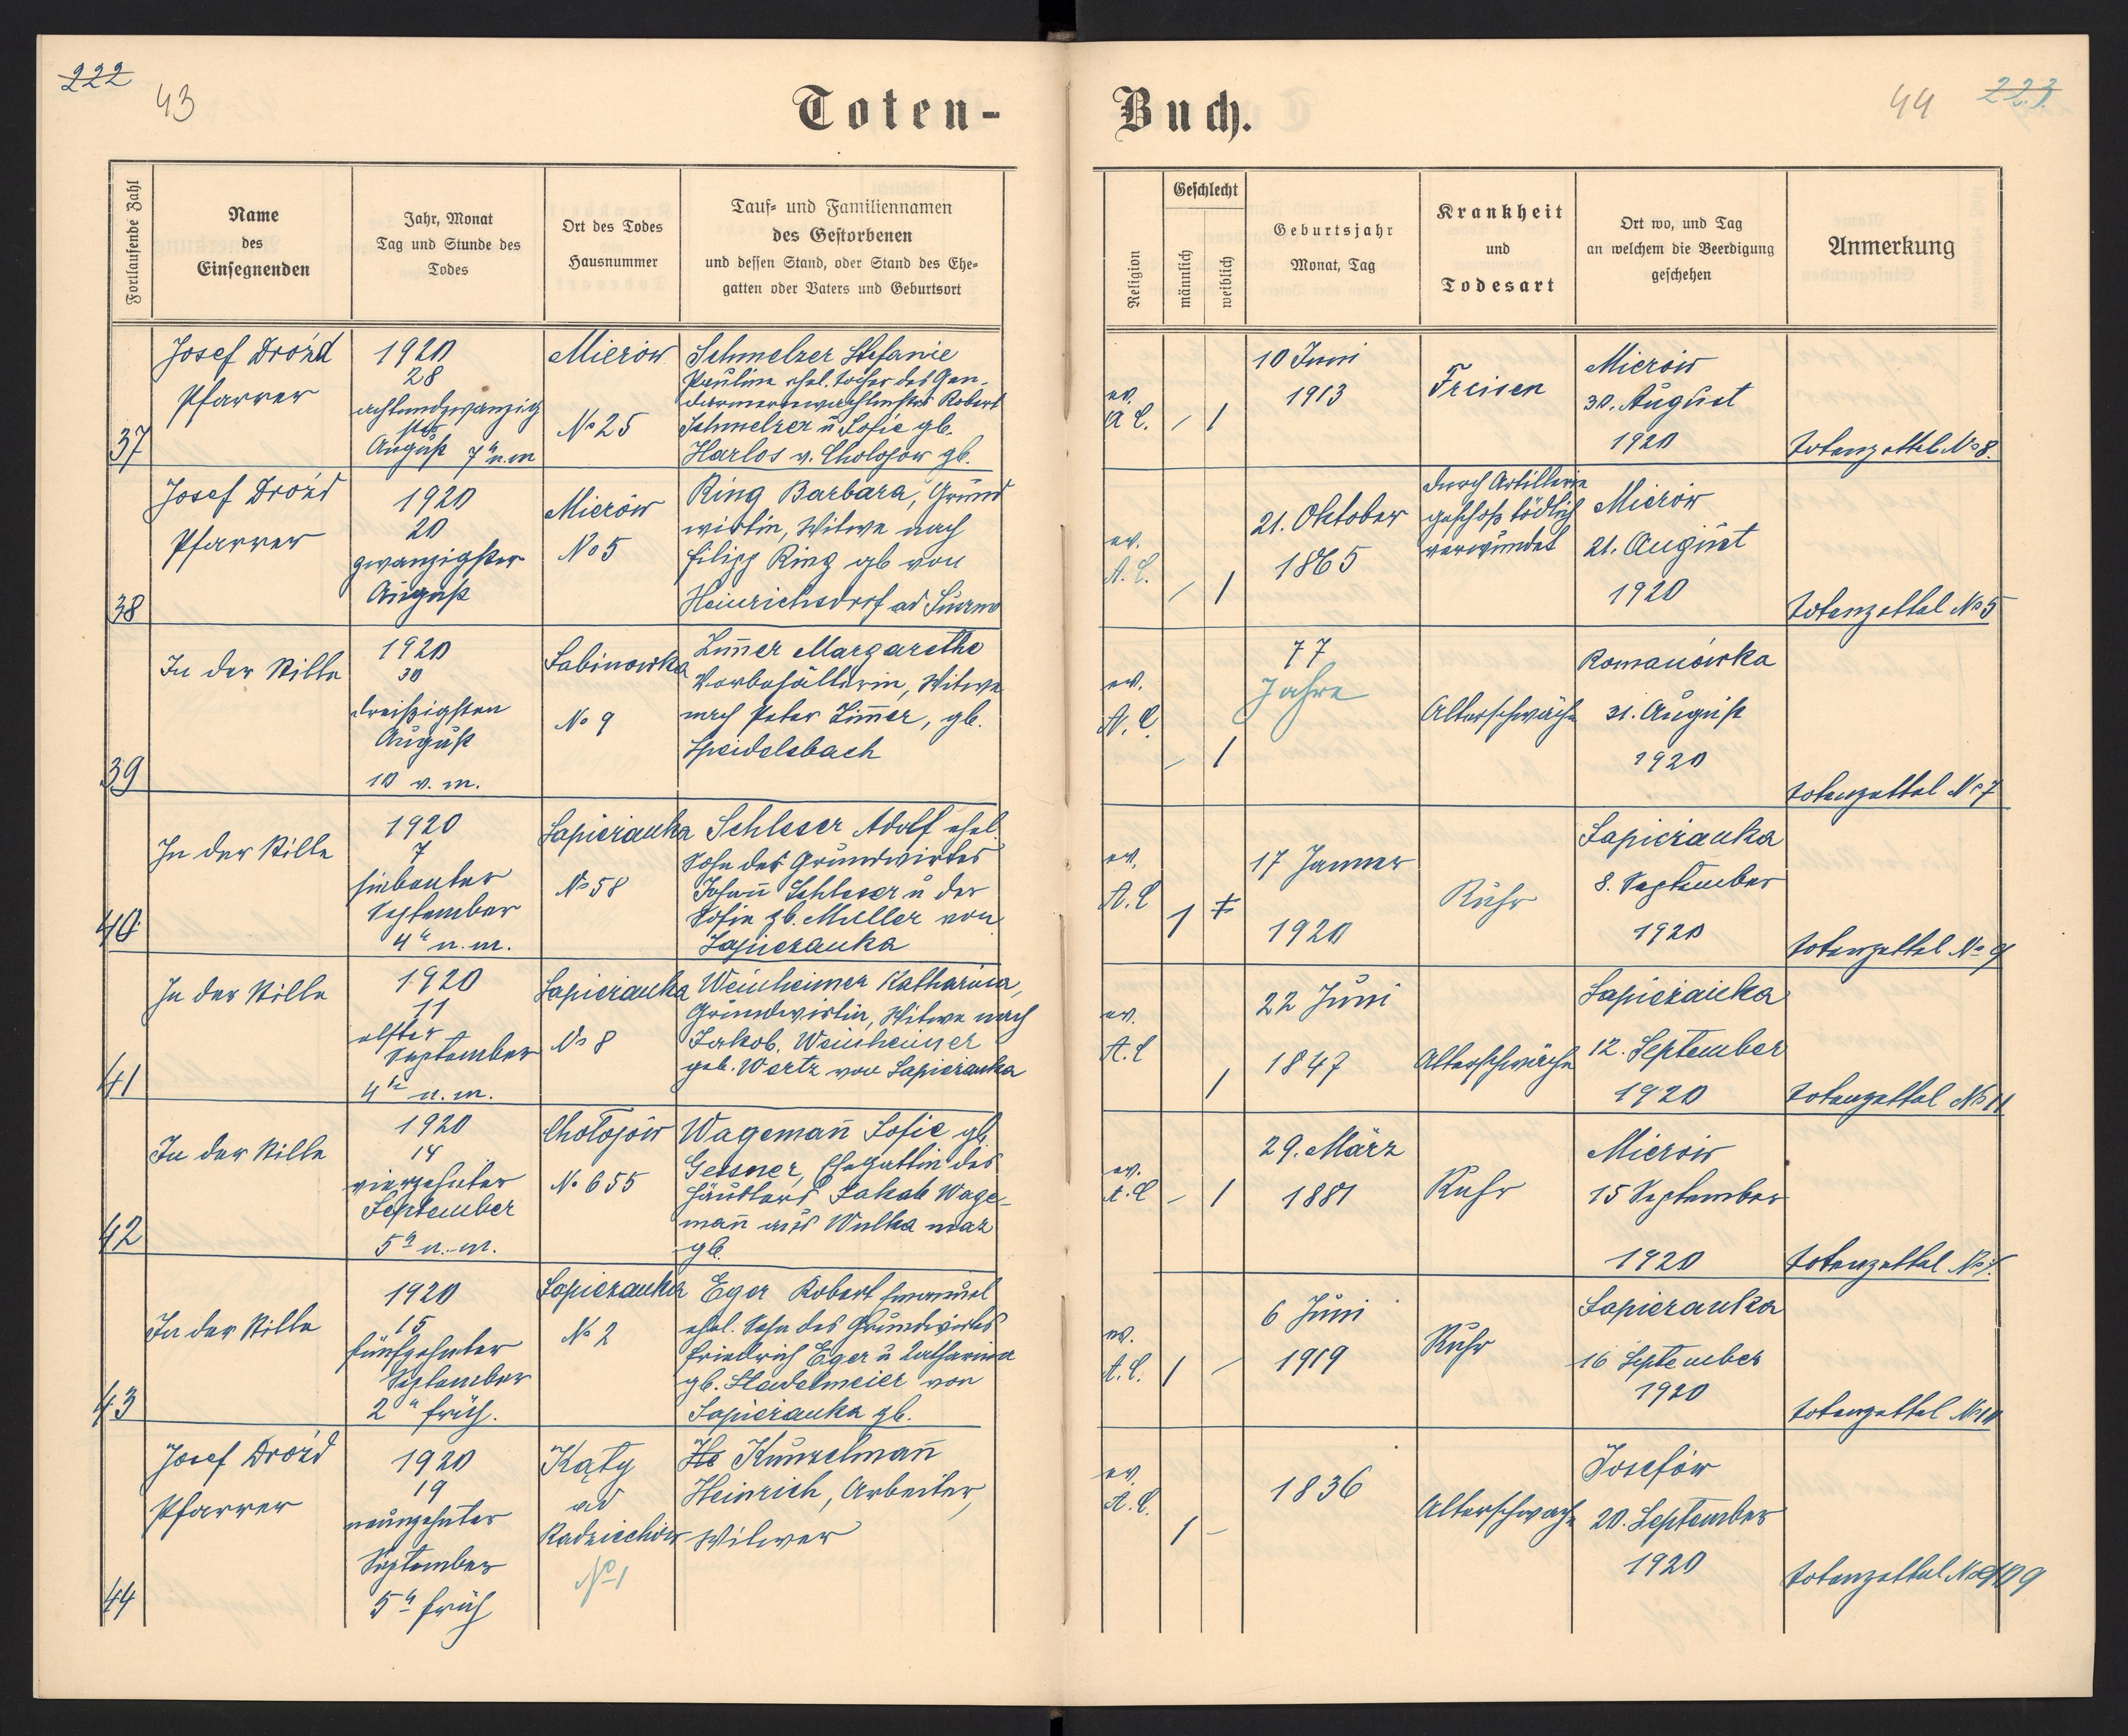 222
43
Toten-
Fortlaufende Zahl
Name
des
Einsegnenden
Jahr, Monat
Tag und Stunde des
Todes
Ort des Todes
Hausnummer
Tauf- und Familiennamen
des Gestorbenen
und dessen Stand, oder Stand des Ehe-
gatten oder Vaters und Geburtsort
37
Josef Drożd
Pfarrer
1920
28
achtundzwanzig
August 7 h n. m
Mierów
No 25
Schmelzer Stefanie
Pauline ehel. Tochter des Gen-
darmeriewachtmstrs Robert
Schmelzer u Sofie gb.
Harlos v. Chołojów gb.
38
Josef Drożd
Pfarrer
1920
20
zwanzigster
August
Mierów
No 5
Ring Barbara, Grund
wirtin, Witwe nach
Filipp Ring gb von
Heinrichsdorf ad
39
In der Stille
1920
30
dreißigsten
August
10 v. m.
Sabinowka
No 9
Zim̄er Margarethe
Vorbehälterin, Witwe
nach Peter Zim̄er, gb.
Speidelsbach
40
In der Stille
1920
7
siebenter
September
4 h n. m.
Sapieżanka
No 58
Schleser Adolf ehel.
Sohn des Grundwirtes
Johan̄ Schleser u der
Sofie gb. Müller von
Sapieżanka
41
In der Stille
1920
11
elfter
September
4 h n. m.
Sapieżanka
No 8
Weinheimer Katharina,
Grundwirtin, Witwe nach
Jakob. Weinheimer
geb. Wertz von Sapieżanka
42
In der Stille
1920
14
vierzehnter
September
5 h n. m.
Chołojów
No 655
Wageman̄ Sofie gb.
Gessner, Ehegattin des
Häuslers Jakob Wage-
man̄ aus Wulka maz
gb.
43
In der Stille
1920
15
fünfzehnter
September
2 h früh.
Sapieżanka
No 2
Eger Robert Emanuel
ehel. Sohn des Grundwirtes
Friedrich Eger u Katharina
gb. Stadelmeier von
Sapieżanka gb.
44
Josef Drożd
Pfarrer
1920
19
neunzehnter
September
5 h früh
Kąty
ad
Radziechów
No 1
He Kunzelman̄
Heinrich, Arbeiter,
Witwer
Buch.
44
223.
Religion
Geschlecht
männlich
weiblich
Geburtsjahr
Monat, Tag
Krankheit
und
Todesart
Ort wo, und Tag
an welchem die Beerdigung
geschehen
Anmerkung
ev.
A. C.
/ 1
10 Juni
1913
Freisen
Mierów
30. August
1920
Totenzettel No 8.
ev.
A. C.
/ 1
21. Oktober
1865
durch Artillerie
geschoß tödlich
verwundet
Mierów
21. August
1920
Totenzettel No 5
ev.
A. C.
- 1
77
Jahre
Alterschwäche
Romanówka
31. August
1920
Totenzettel No 7
ev.
A. C
1
17 Jänner
1920
Ruhr
Sapieżanka
8. September
1920
Totenzettel No 9
ev.
A. C
1
22 Juni
1847
Alterschwäche
Sapieżanka
12. September
1920
Totenzettel No 11
ev.
A. C
- 1
29. März
1881
Ruhr
Mierów
15 September
1920
Totenzettel
ev.
A. C.
1 -
6 Juni
1919
Ruhr
Sapieżanka
16 September
1920
Totenzettel No 10
ev.
A. C.
1 -
1836
Alterschwäche
Josefów
20. September
1920
Totenzettel